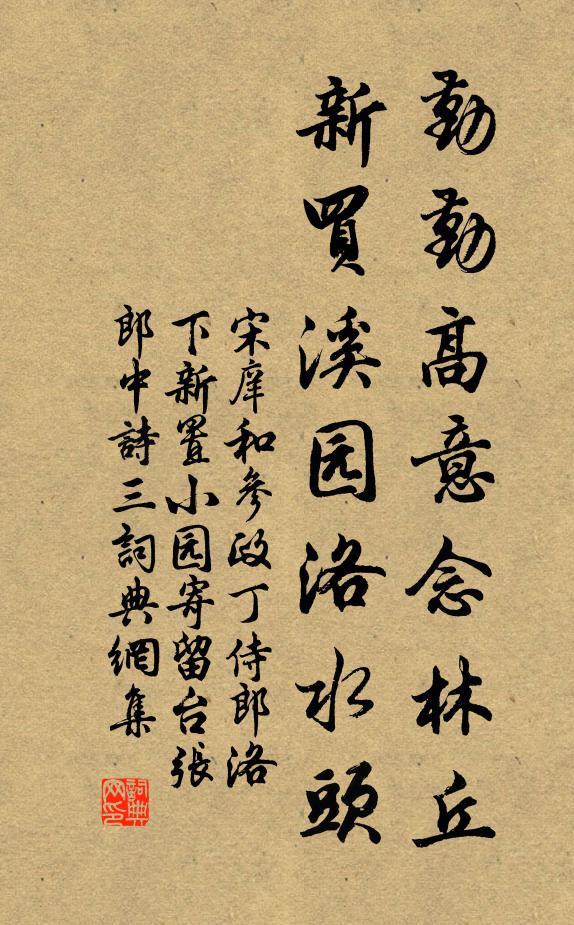 勤勤高意念林丘
新買溪园洛水頭
宋庠和參政丁侍郎洛
下新置小园寄留台張
郎中詩三詞典網集
詞典
网印